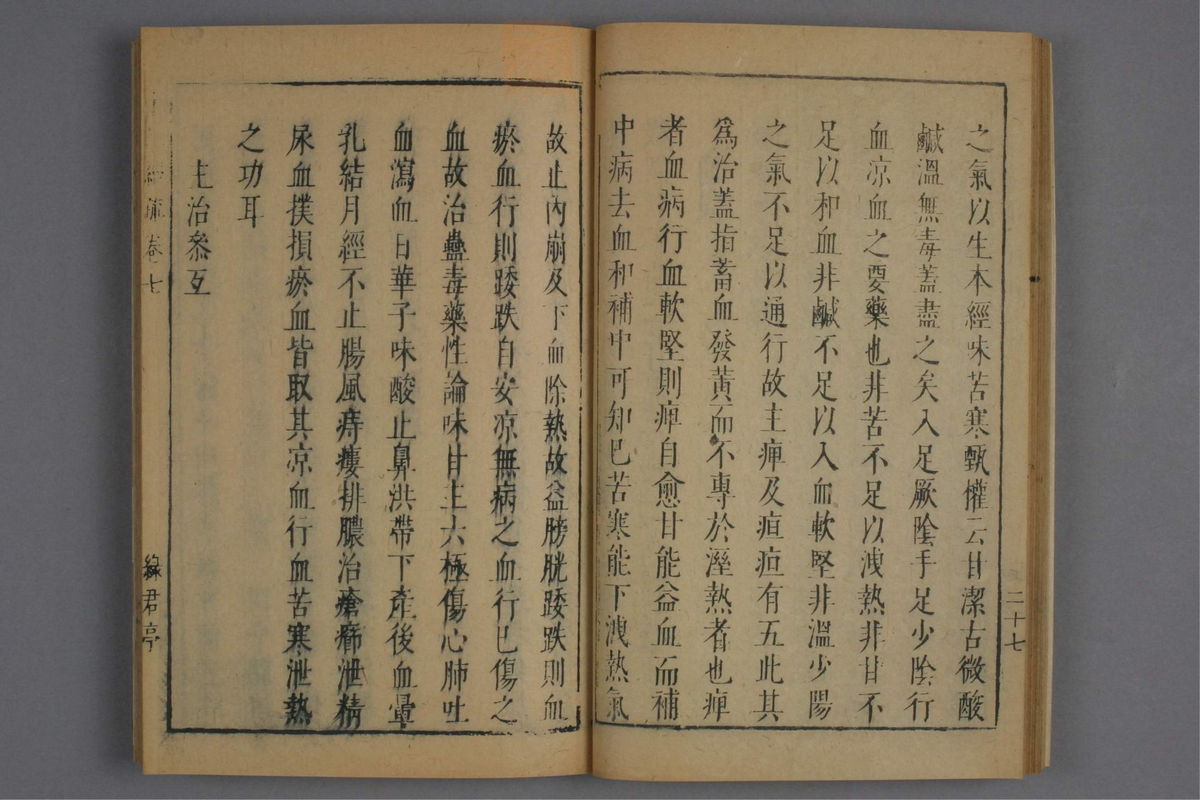 之氣以生本經味苦寒甄權云甘潔古微酸
鹹溫無毒蓋盡之矣入足厥陰手足少陰行
血凉血之要藥也非苦不足以洩熱非甘不
足以和血非鹹不足以入血軟堅非溫少陽
之氣不足以通行故主痺及疸疸有五此其
爲治蓋指蓄血發黃而不專於溼熱者也痺
者血病行血軟堅則痺自愈甘能益血而補
中病去血和補中可知巳苦寒能下洩熱氣
二十七
故止內崩及下血除熱故益膀胱踒跌則血
瘀血行則踒跌自安凉無病之血行巳傷之
血故治蠱毒藥性論味甘主六極傷心肺吐
血瀉血日華子味酸止鼻洪帶下產後血暈
乳結月經不止腸風痔瘻排膿治瘡癤泄精
尿血撲損瘀血皆取其凉血行血苦寒泄熱
之功耳
主治叅互
經疏卷七
綠君亭